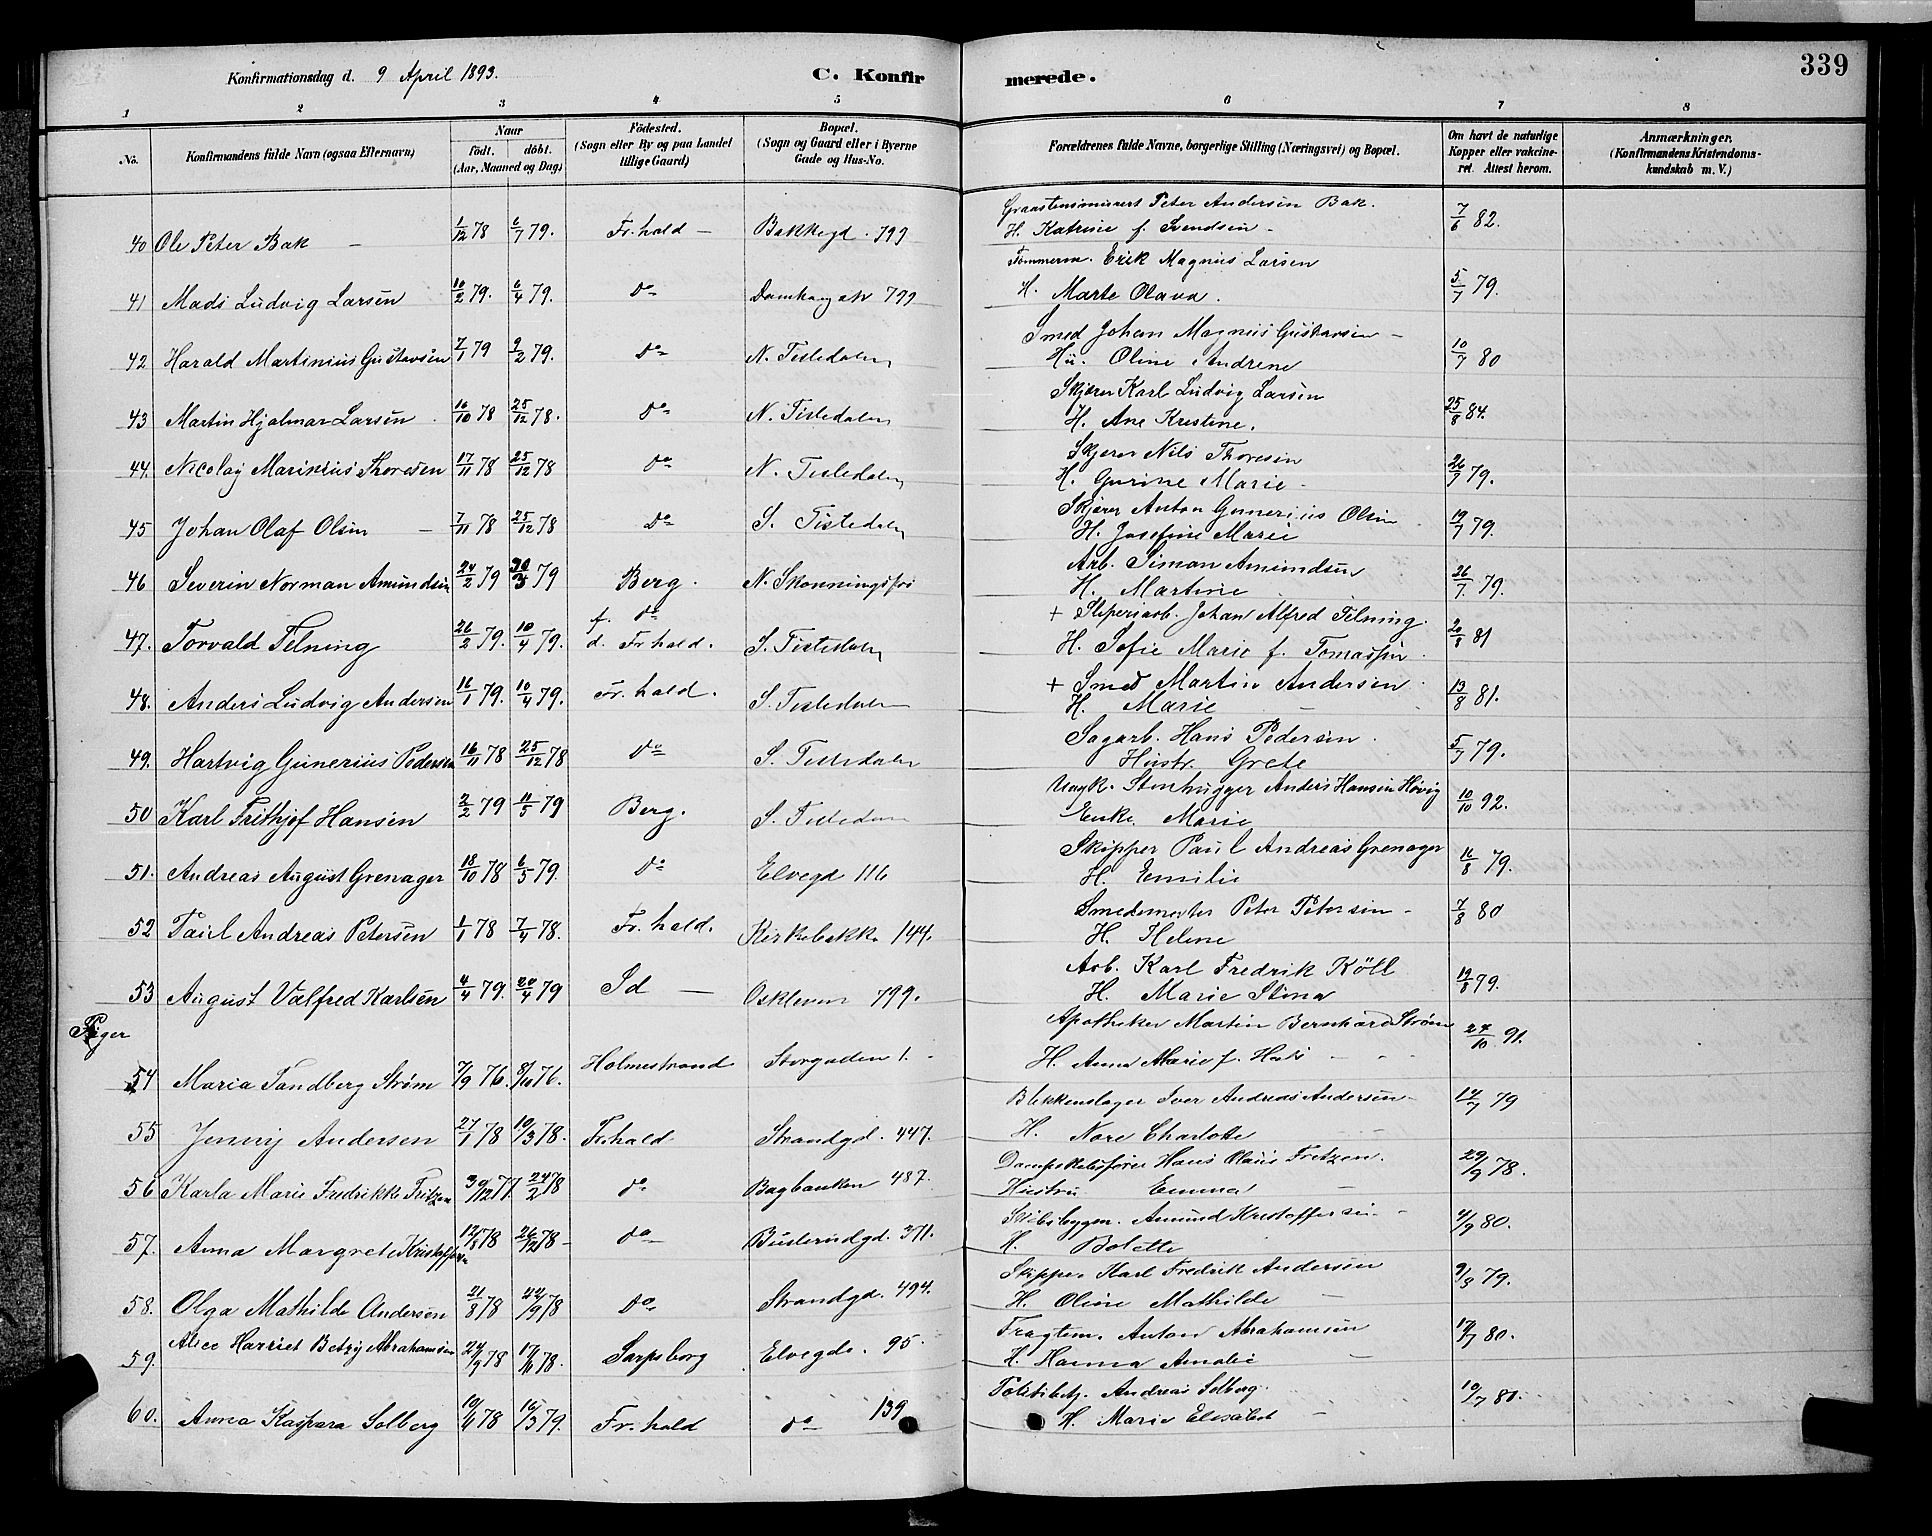 339
Konfirmationsdag d. 9 April 1893. C. Konfirmerede.
1 2 3 4 5 6 7 8
No. Konfirmandens fulde Navn (ogsaa Efternavn) Naar födt. döbt. (Aar, Maaned og Dag) Födested. (Sogn eller By og paa Landet tillige Gaard) Bopæl. (Sogn og Gaard eller i Byerne Gade og Hus-No. Forældrenes fulde Navne, borgerlige Stilling (Næringsvei) og Bopæl. Om havt de naturlige Kopper eller vakcineret. Attest herom. Anmærkninger. (Konfirmandens Kristendomskundskab m. V.)
40 Ole Peter Bak 1/12 78 6/7 79. Fr.hald Bakkegd. 799 Peter Andersen Bak. H. Katrine f. Svendsen 7/6 82.
41 Mads Ludvig Larsen 10/2 79. 6/4 79. do 799 Tømmerm. Erik Magnus Larsen H. Marte Olava. 5/7 79.
42 Harald Martinius Gustavsen 7/1 79 9/2 79. do N. Tistedalen Smed Johan Magnus Gustavsen Hu. Oline Andrene 10/7 80
43 Martin Hjalmar Larsen 16/10 78 25/12 78. do N. Tistedalen Skjærer Karl Ludvig Larsen H. Ane Kristine. 25/8 84.
44. Nicolay Marinius Thoresen 17/11 78 25/12 78 do N. Tistedalen Skjærer Nils Thoresen H. Gurine Marie 26/7 79.
45 Johan Olaf Olsen 7/11 78 25/12 78 do S. Tistedalen Skjærer Anton Gunerius Olsen H. Josefine Marie 19/7 79.
46 Severin Norman Amundsen 24/2 79 30/3 79 Berg. N. Skonningsfos Arb. Simon Amundsen H. Martine 26/7 79.
47. Torvald Telning 26/2 79. 10/4 79. f. do d. Fr.hald. S. Tistedalen + Sliperiarb. Johan Alfred Telning. H. Sofie Marie f. Tomassen 20/8 81
48. Anders Ludvig Andersen 16/1 79. 10/4 79. Fr.hald. S. Tistedalen + Smed Martin Andersen H. Marie 13/8 81.
49. Hartvig Gunerius Pedersen 16/11 78 25/12 78 do S. Tistedalen Sagarb. Hans Pedersen. Hustr. Grete 5/7 79.
50 Karl Frithjof Hansen 2/2 79 11/5 79 Berg. S. Tistedalen Ungk. Stenhugger Anders Hansen Høvig Enke Marie 10/10 92.
51. Andreas August Grenager 18/10 78 6/5 79. do Elvegd 116 Skipper Paul Andreas Grenager H. Emilie 11/8 79.
52 Paul Andreas Petersen 1/1 78 7/4 78. Fr.hald. Kirkebakke 144. Smedemester Peter Petersen H. Helene 7/8 80
53 August Valfred Karlsen 4/4 79. 20/4 79 Id Oskleven 799. Arb. Karl Fredrik Köll H. Marie Stina 19/8 79.
Piger
54 Maria Tandberg Strøm 7/9 76. 8/10 76. Holmestrand Storgaden 1. Apotheker Martin Bernhard Strøm H. Anna Marie f. 27/10 91.
55 Jenny Andersen 27/1 78 10/3 78. Fr.hald Strandgd. 447. Blikkenslager Iver Andreas Andersen H. Nore Charlotte 17/7 79
56 Karla Marie Fredrikke Fritzen 30/12 77. 24/2 78 do Bagbanken 487. Dampskibsfører Hans Olaus Fretzen. Hustru Emma 29/9 78.
57. Anna Margrete Kristoffersen 26/12 78 do Busterudgd. 371. Skibsbygm. Amund Kristoffersen H. Bolette 4/9 80.
58. Olga Mathilde Andersen 21/8 78 22/9 78 do Strandgd. 494. Skipper Karl Fredrik Andersen H. Oline Mathilde 9/8 79.
59. Alice Harriet Betsy Abrahamsen 24/9 78 17/11 78. Sarpsborg Elvegd. 95. Fragtem. Anton Abrahamsen H. Hanna Amalie 17/7 80.
60. Anna Kaspara Solberg 10/4 78 16/3 79. Fr.hald do 139 Politibetj. Andreas Solberg. H. Marie Elisabet 10/7 81.